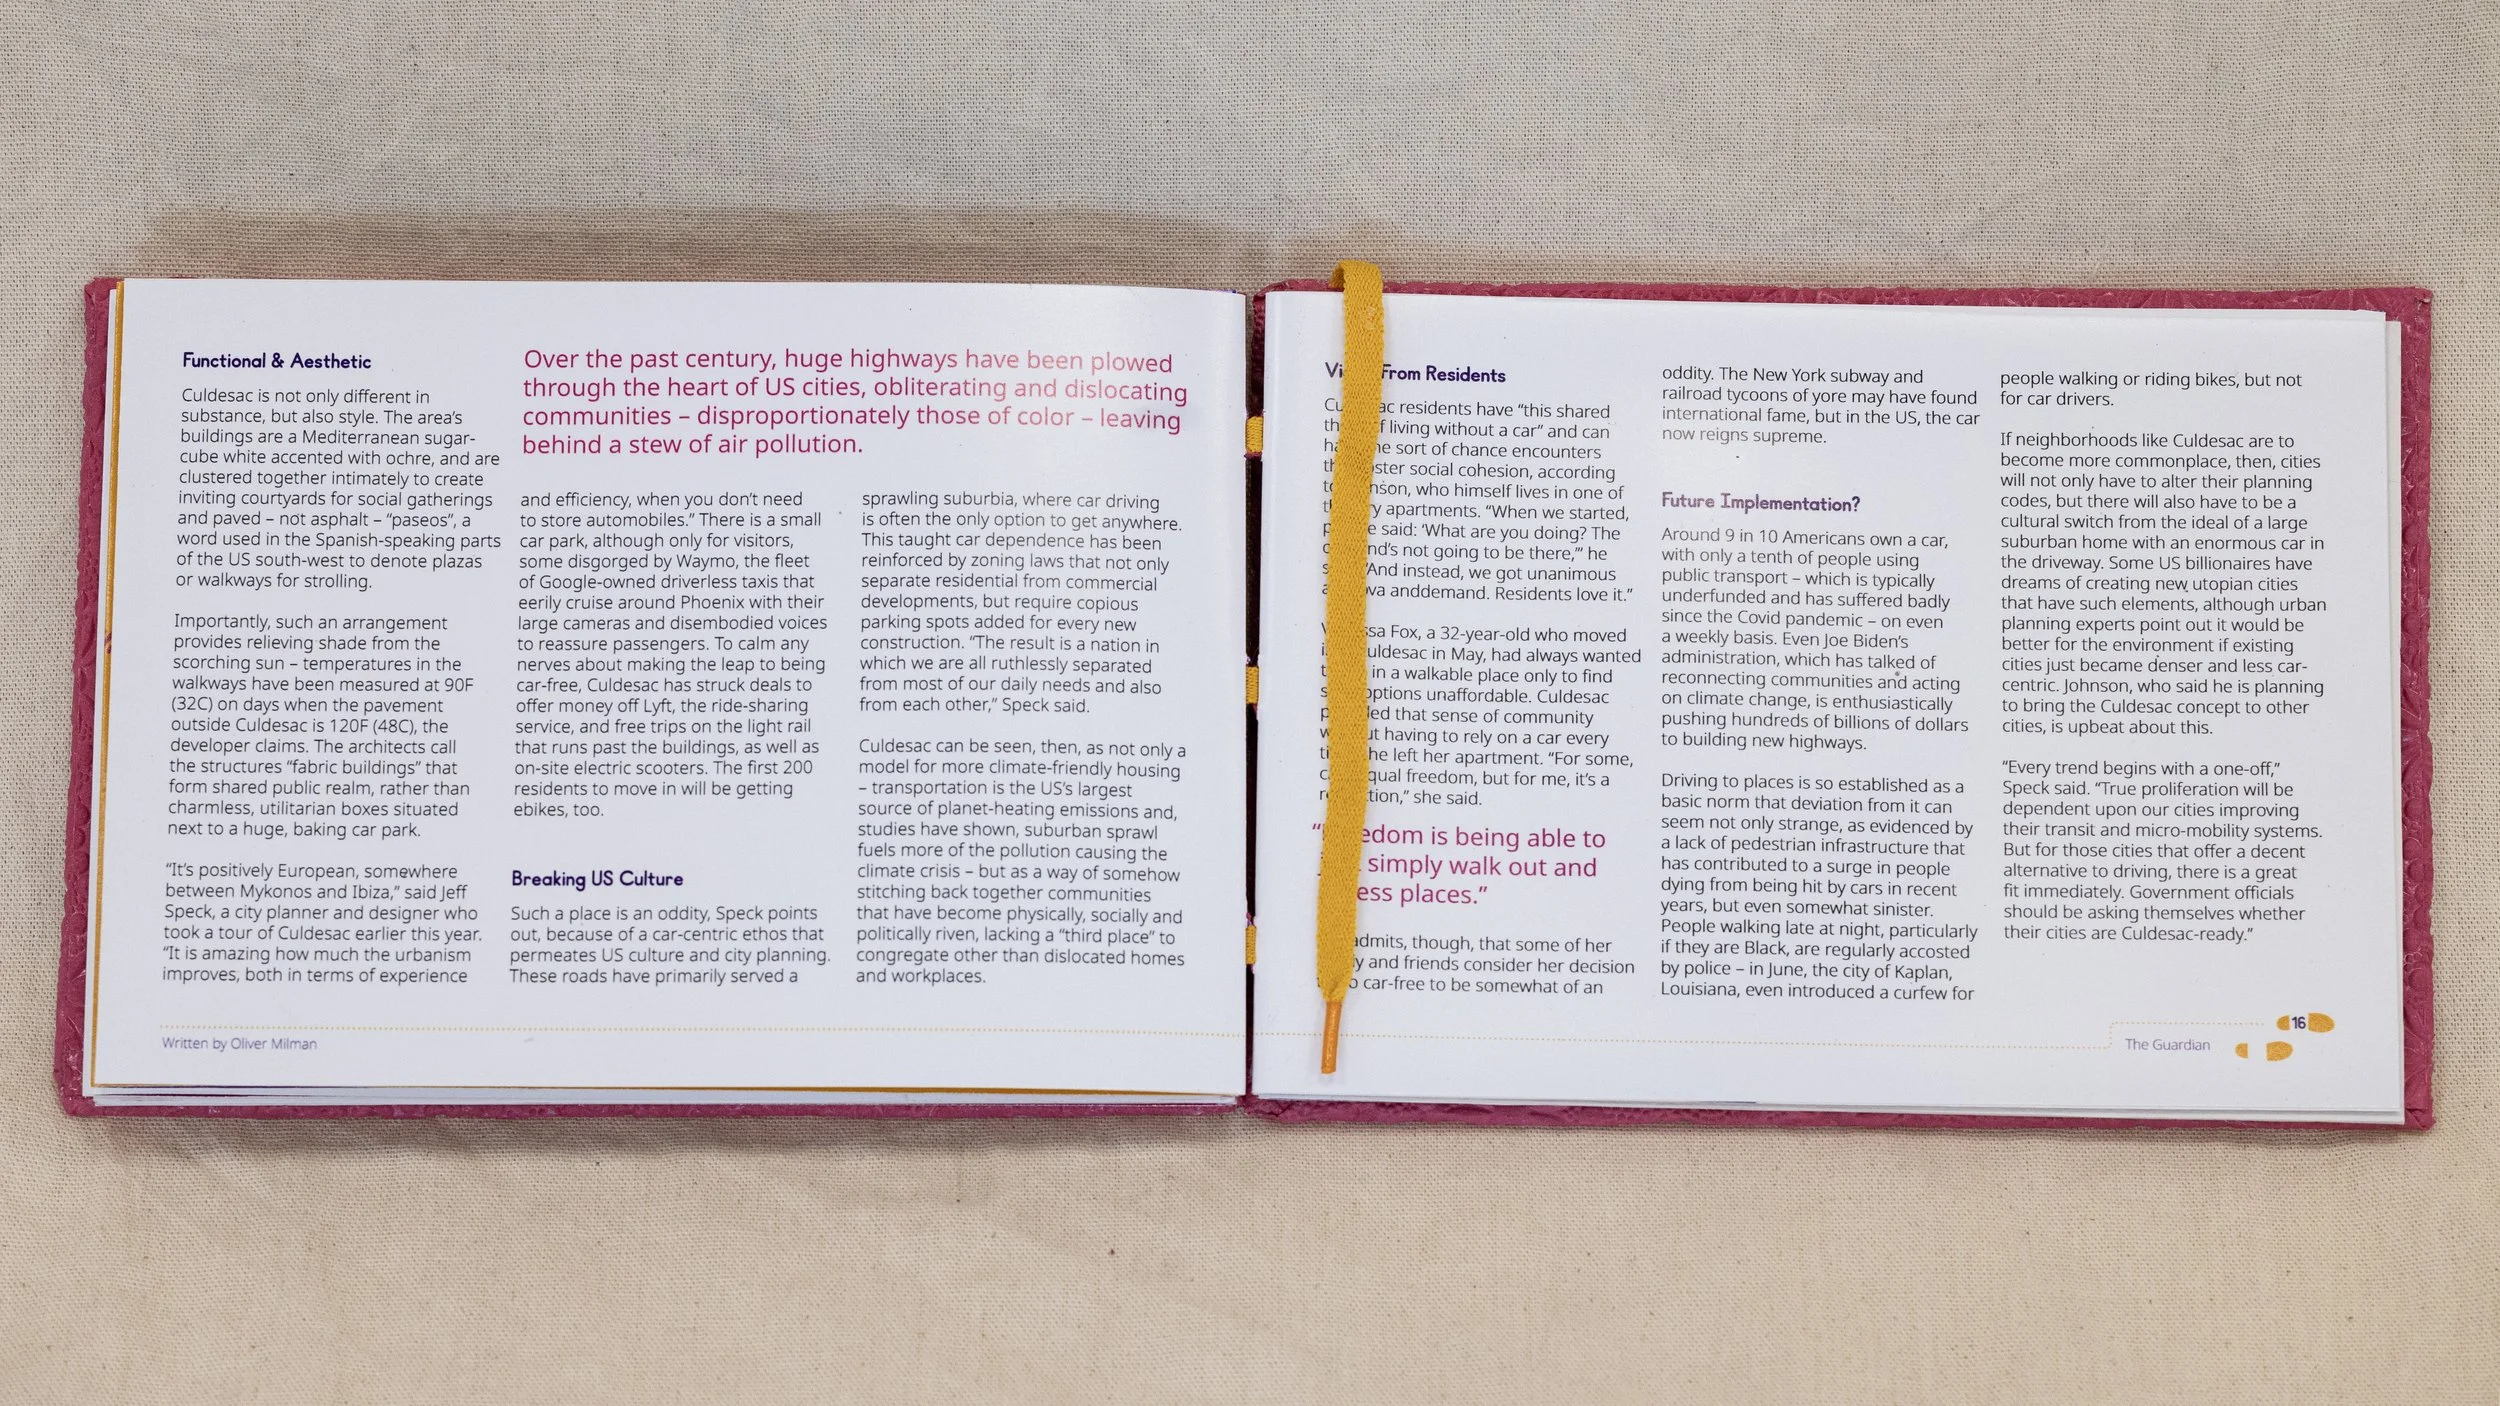 Functional & Aesthetic
Culdesac is not only different in
substance, but also style. The area's
buildings are a Mediterranean sugar-
cube white accented with ochre, and are
clustered together intimately to create
inviting courtyards for social gatherings
and paved – not asphalt – "paseos", a
word used in the Spanish-speaking parts
of the US south-west to denote plazas
or walkways for strolling.
Importantly, such an arrangement
provides relieving shade from the
scorching sun – temperatures in the
walkways have been measured at 90F
(32C) on days when the pavement
outside Culdesac is 120F (48C), the
developer claims. The architects call
the structures "fabric buildings" that
form shared public realm, rather than
charmless, utilitarian boxes situated
next to a huge, baking car park.
"It's positively European, somewhere
between Mykonos and Ibiza," said Jeff
Speck, a city planner and designer who
took a tour of Culdesac earlier this year.
"It is amazing how much the urbanism
improves, both in terms of experience
Over the past century, huge highways have been plowed
through the heart of US cities, obliterating and dislocating
communities – disproportionately those of color – leaving
behind a stew of air pollution.
and efficiency, when you don't need
to store automobiles." There is a small
car park, although only for visitors,
some disgorged by Waymo, the fleet
of Google-owned driverless taxis that
eerily cruise around Phoenix with their
large cameras and disembodied voices
to reassure passengers. To calm any
nerves about making the leap to being
car-free, Culdesac has struck deals to
offer money off Lyft, the ride-sharing
service, and free trips on the light rail
that runs past the buildings, as well as
on-site electric scooters. The first 200
residents to move in will be getting
ebikes, too.
Breaking US Culture
Such a place is an oddity, Speck points
out, because of a car-centric ethos that
permeates US culture and city planning.
These roads have primarily served a
sprawling suburbia, where car driving
is often the only option to get anywhere.
This taught car dependence has been
reinforced by zoning laws that not only
separate residential from commercial
developments, but require copious
parking spots added for every new
construction. "The result is a nation in
which we are all ruthlessly separated
from most of our daily needs and also
from each other," Speck said.
Culdesac can be seen, then, as not only a
model for more climate-friendly housing
– transportation is the US's largest
source of planet-heating emissions and,
studies have shown, suburban sprawl
fuels more of the pollution causing the
climate crisis – but as a way of somehow
stitching back together communities
that have become physically, socially and
politically riven, lacking a "third place" to
congregate other than dislocated homes
and workplaces.
Written by Oliver Milman
From Residents
residents have "this shared
living without a car" and can
sort of chance encounters
social cohesion, according
who himself lives in one of
apartments. "When we started,
said: 'What are you doing? The
not going to be there,'" he
"And instead, we got unanimous
anddemand. Residents love it."
Fox, a 32-year-old who moved
in May, had always wanted
in a walkable place only to find
options unaffordable. Culdesac
that sense of community
having to rely on a car every
she left her apartment. "For some,
equal freedom, but for me, it's a
she said.
is being able to
simply walk out and
places."
admits, though, that some of her
and friends consider her decision
car-free to be somewhat of an
oddity. The New York subway and
railroad tycoons of yore may have found
international fame, but in the US, the car
now reigns supreme.
Future Implementation?
Around 9 in 10 Americans own a car,
with only a tenth of people using
public transport – which is typically
underfunded and has suffered badly
since the Covid pandemic – on even
a weekly basis. Even Joe Biden's
administration, which has talked of
reconnecting communities and acting
on climate change, is enthusiastically
pushing hundreds of billions of dollars
to building new highways.
Driving to places is so established as a
basic norm that deviation from it can
seem not only strange, as evidenced by
a lack of pedestrian infrastructure that
has contributed to a surge in people
dying from being hit by cars in recent
years, but even somewhat sinister.
People walking late at night, particularly
if they are Black, are regularly accosted
by police – in June, the city of Kaplan,
Louisiana, even introduced a curfew for
people walking or riding bikes, but not
for car drivers.
If neighborhoods like Culdesac are to
become more commonplace, then, cities
will not only have to alter their planning
codes, but there will also have to be a
cultural switch from the ideal of a large
suburban home with an enormous car in
the driveway. Some US billionaires have
dreams of creating new utopian cities
that have such elements, although urban
planning experts point out it would be
better for the environment if existing
cities just became denser and less car-
centric. Johnson, who said he is planning
to bring the Culdesac concept to other
cities, is upbeat about this.
"Every trend begins with a one-off,"
Speck said. "True proliferation will be
dependent upon our cities improving
their transit and micro-mobility systems.
But for those cities that offer a decent
alternative to driving, there is a great
fit immediately. Government officials
should be asking themselves whether
their cities are Culdesac-ready."
The Guardian
16